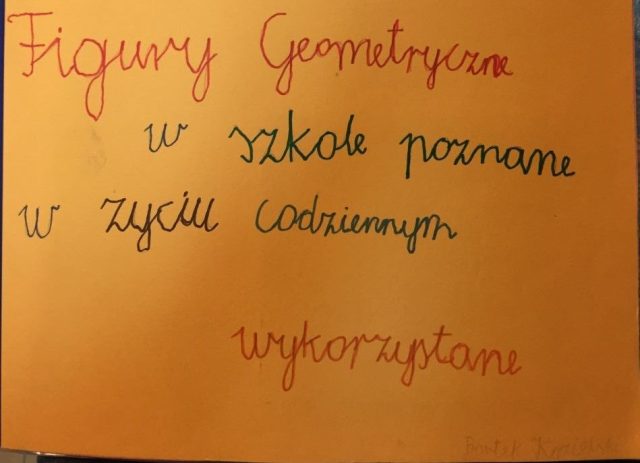 Figury Geometryczne
w szkole poznane
w życiu codziennym
wykorzystane